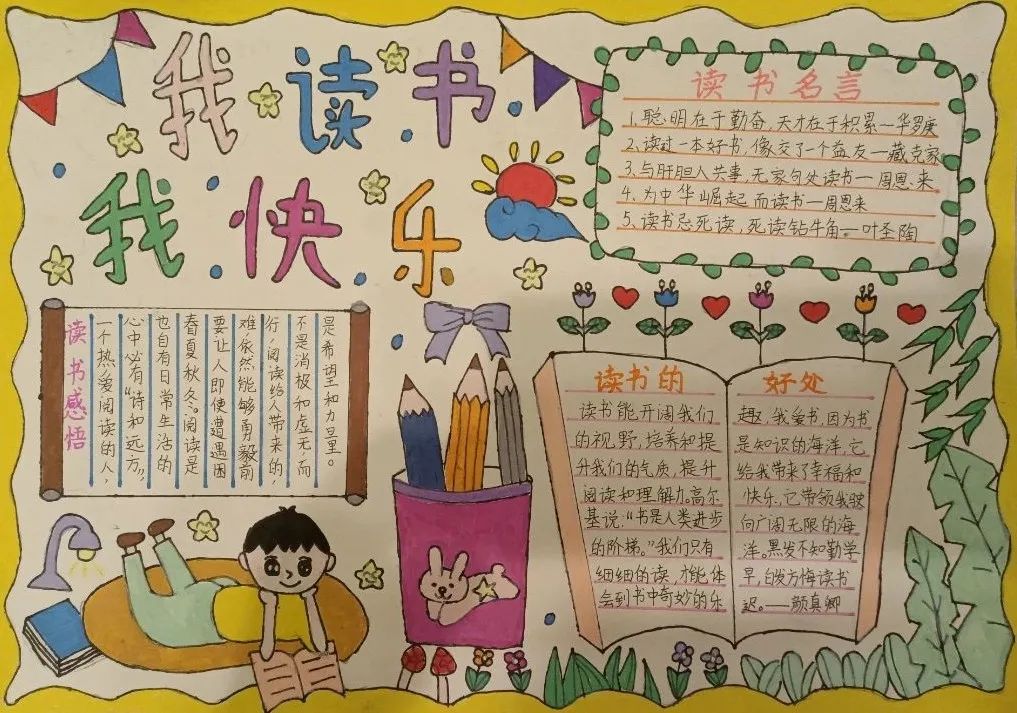 我读书
我快乐
读书名言
1.聪明在于勤奋,天才在于积累一华罗庚
2.读过一本好书,像交了一个益友一藏克家
3.与肝胆人共事,无家句处读书一周恩来
4.为中华崛起而读书一周恩来
5.读书忌死读,死读钻牛角。一叶圣陶
读书感悟
一个热爱阅读的人,
心中必有“诗和远方”,
也自有日常生活的
春夏秋冬。阅读是
要让人即使遭遇困
难依然能够勇毅前
行,阅读给人带来的,
不是消极和虚无,而
是希望和力量。
读书的
读书能开阔我们
的视,野,培养和提
升我们的气质,提升
阅读和理解力。高尔
基说,“书是人类进步
的阶梯。”我们只有
细细的读,才能体
会到书中奇妙的乐
好处
趣,我爱书,因为书
是知识的海洋,它
给我带来了幸福和
快乐,它带领我驶
向广阔无限的海
洋。黑发不知勤学
早,白发方悔读书
迟。——颜真卿